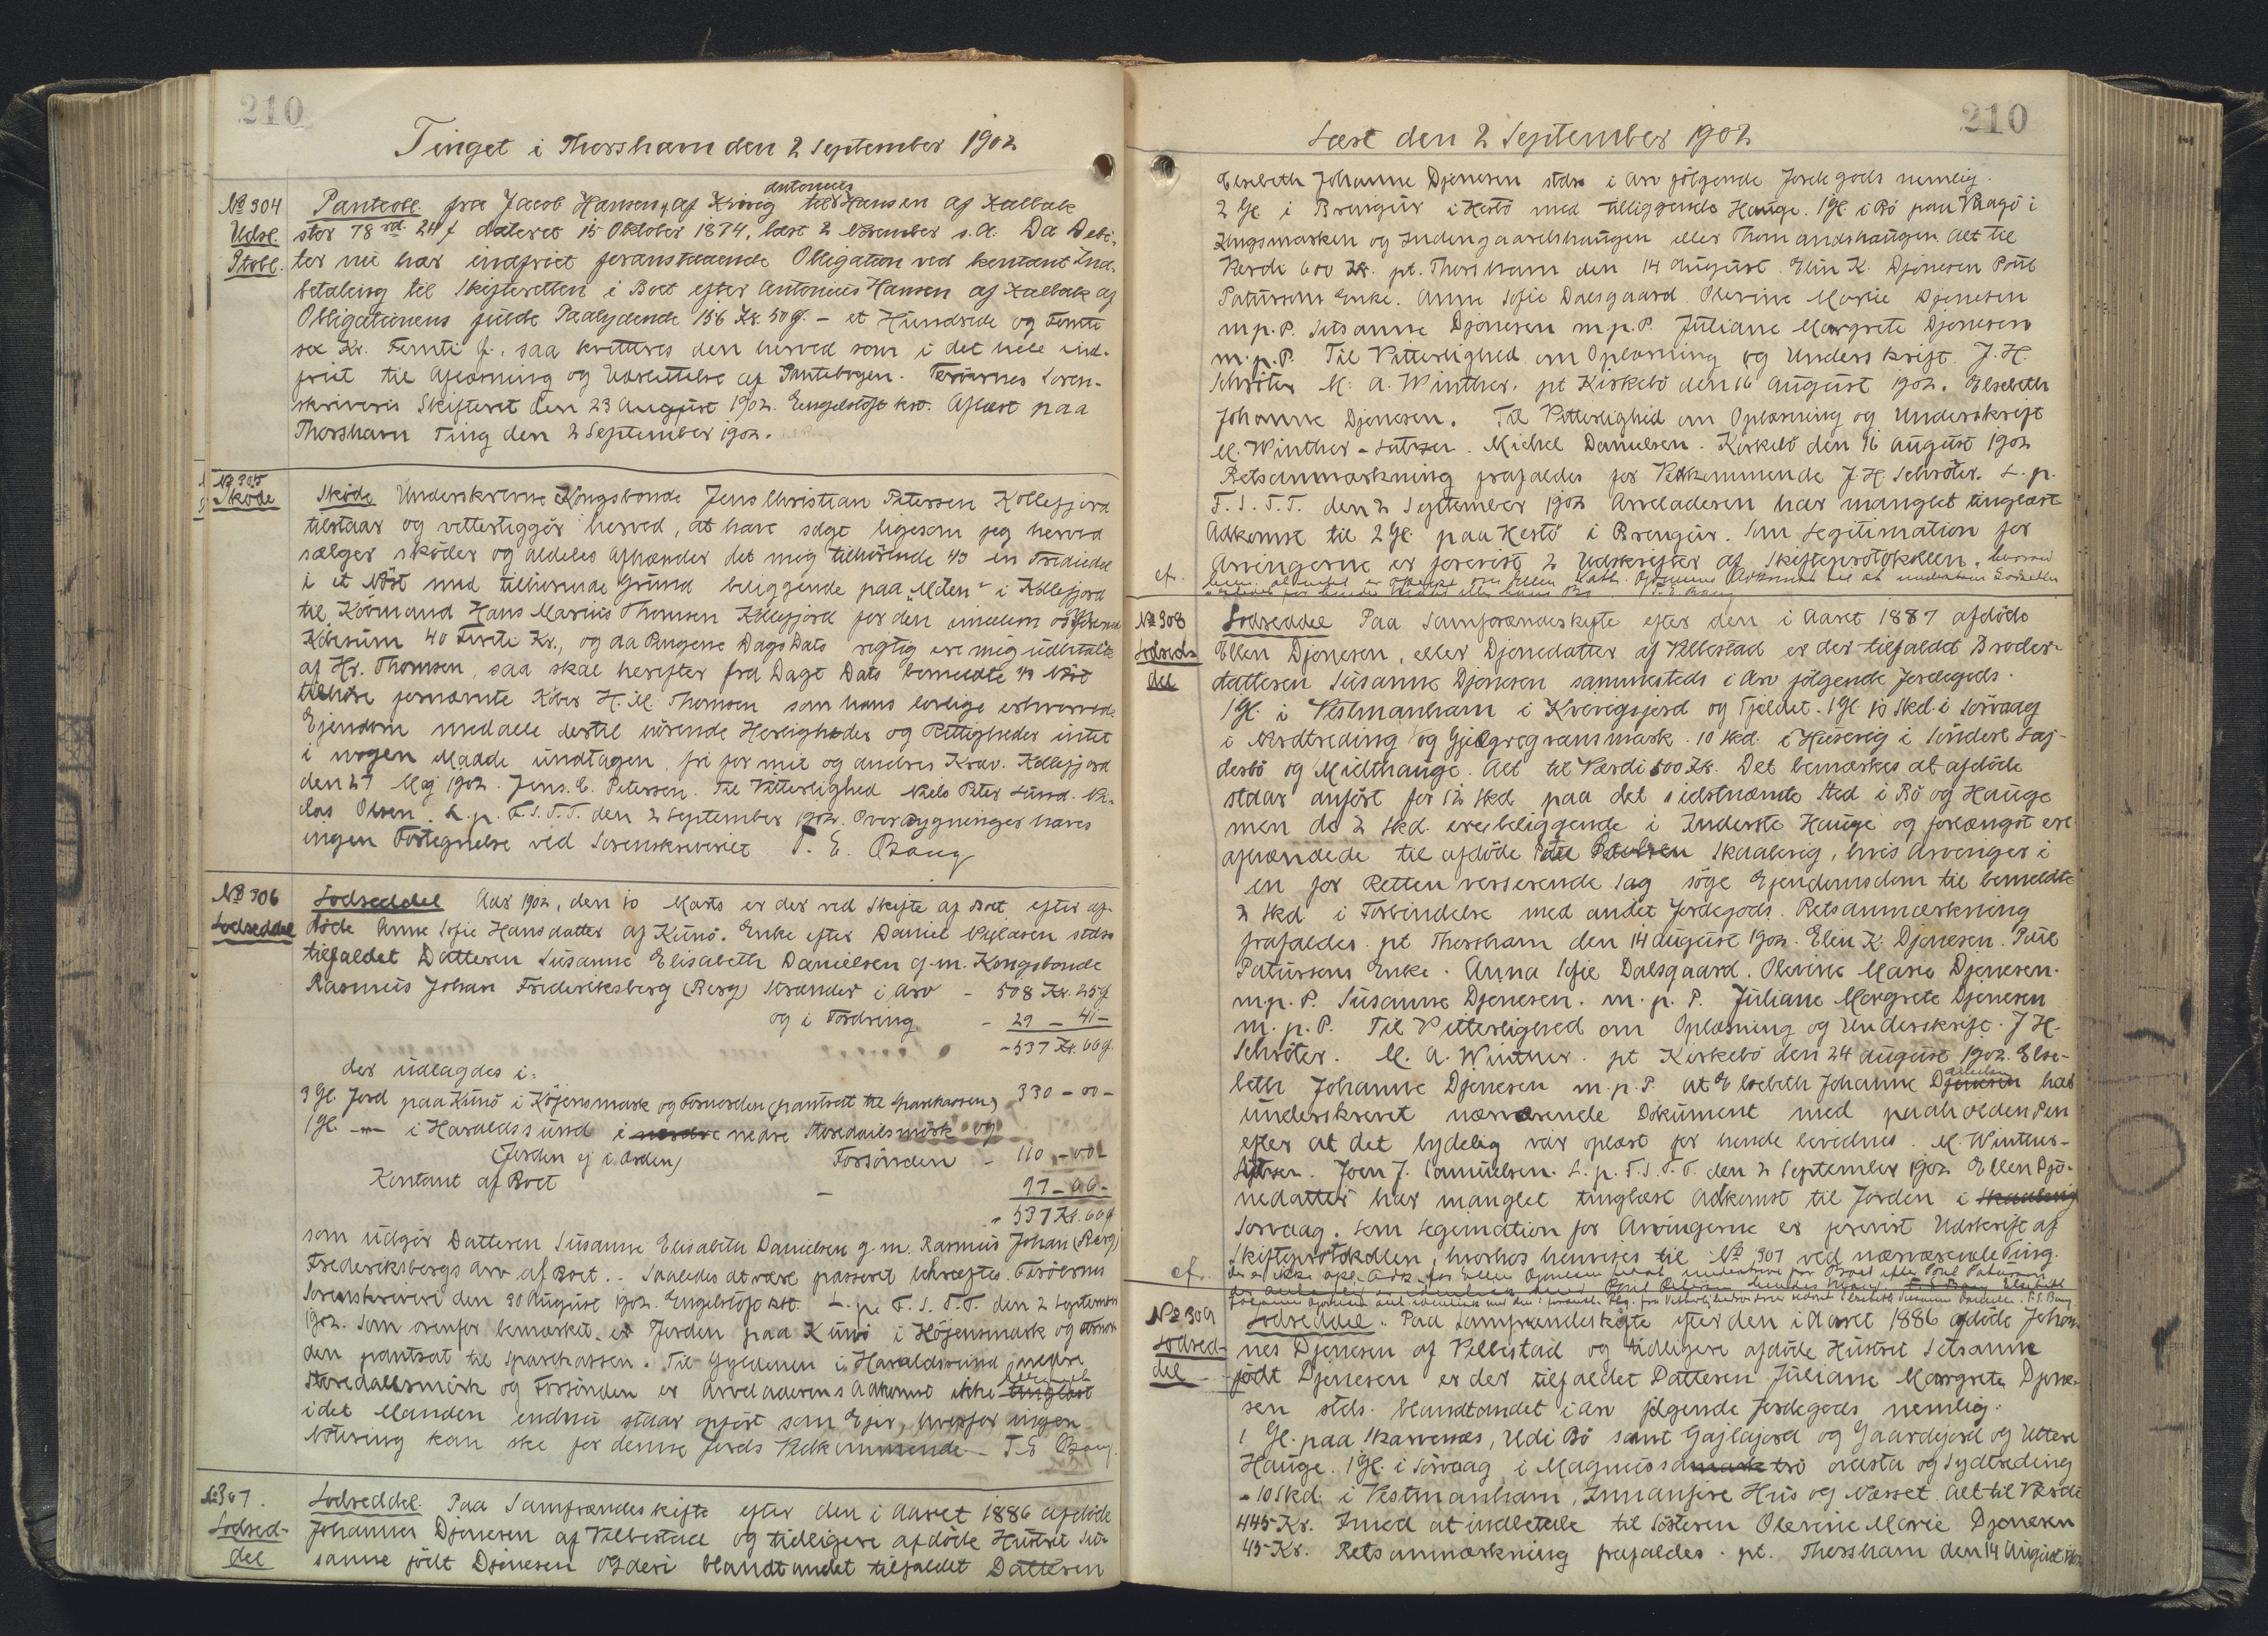 210
Tinget i Thorshavn den 2 September 1902
No 304
Udsl.
Ptobl.
Panteobl. fra Jacob Hansen, af Kvivig til Antonius Hansen af Kalbak
stor 78 rd. 24 f dateret 15 Oktober 1874, læst 2 November s.A. Da Debi-
tor nu har indfriet foranstaaende Obligation ved kontant Ind-
betaling til Skifteretten i Boet efter Antonius Hansen af Kalbak af
Obligationens fulde Paalydende 156 Kr. 50 Ø. - et Hundrede og Femti
sex Kr. Femti Ø., saa kvitteres den herved som i det hele ind-
friet til Aflæsning og Udslettelse af Pantebogen. Færøernes Soren-
skriveris Skifteret den 23 August 1902. Engelstoft kst. Aflæst paa
Thorshavn Ting den 2 September 1902.
No 305
Skøde
Skøde Underskrevne Kongsbonde Jens Christian Petersen Kollefjord
tilstaar og vitterliggør herved, at have solgt ligesom jeg herved
sælger skøder og aldeles afhænder det mig tilhørende 1/3 en Trediedel
i et Nøst med tilhørende Grund beliggende paa "Møen" i Kollefjord
til Købmand Hans Marius Thomsen Kollefjord for den imellem os
Købesum 40 Firti Kr., og da Pengene Dags Dato rigtig ere mig udbetalte
af Hr. Thomsen, saa skal herefter fra Dags Dato bemeldte 1/3 Nøst
tilhøre fornævnte Køber H. M. Thomsen som hans lovlige erhvervede
Ejendom med alle dertil hørende Herligheder og Rettigheder intet
i nogen Maade undtagen, fri for mit og andres Krav. Kollefjord
den 27 Maj 1902. Jens. C. Petersen. Til Vitterlighed Niels Peter Lund. Ni-
clas Olsen. L. p. T.S.T.T. den 2 September 1902. Over Bygninger haves
ingen Fortegnelse ved Sorenskriveriet T. E. Bang
No 306
Lodseddel
Lodseddel Aar 1902, den 10 Marts er der ved Skifte af Boet efter af-
døde Anne Sofie Hansdatter af Kunø. Enke efter Daniel Niclasen stds
tilfaldet Datteren Susanne Elisabeth Danielsen g.m. Kongsbonde
Rasmus Johan Frederiksberg (Berg) Strænder i Arv - 508 Kr. 25 Ø
og i Fordring - 29 - 41 -
- 537 Kr. 66 Ø.
der udlagdes i:
3 Gl. Jord paa Kunø i Højensmark og Fornorden (pantsat til Sparekassen) 330 - 00 -
1 Gl. -"- i Haraldssund i nordre nedre Storedalsmørk og
(Jorden ej i Orden) Forsønden - 110 - 00 -
Kontant af Boet - 97 - 66 -
- 537 Kr. 66 Ø
som udgør Datteren Susanne Elisabeth Danielsen g.m. Rasmus Johan (Berg)
Frederiksbergs Arv af Boet. - Saaledes at være passeret bekræftes. Færøernes
Sorenskriveri den 30 August 1902. Engelstoft kst. L. p. T.S.T.T. den 2 September
1902. Som ovenfor bemærket er Jorden paa Kunø i Højensmark og Fornor
den pantsat til Sparekassen. Til Gyldenen i Haraldssund nedre
Storedallsmørk og Forsønden er Arveladerens Adkomst ikke tinglæst
idet Manden endnu staar opført som Ejer, hvorfor ingen
Notering kan ske for denne Jords Vedkommende - T. E. Bang.
No 307.
Lodsed-
del
Lodseddel. Paa Samfrændeskifte efter den i Aaret 1886 afdøde
Johannes Djonesen af Velbestad og tidligere afdøde Hustru Su-
sanne født Djonesen og deri blandt andet tilfaldet Datteren
210
Læst den 2 September 1902
Elsebeth Johanne Djonesen stds i Arv følgende Jordegods nemlig.
2 Gl. i Brengur i Hestø med tilliggende Hauge. 1 Gl. i Bø paa Vaagø i
Kongsmarken og Indengaardshaugen eller Thomandshaugen. Alt til
Værdi 600 Kr. pt. Thorshavn den 14 August. Elin K. Djonesen Poul
Patursons Enke. Anne Sofie Dalsgaard. Olevine Marie Djonesen
m.p.P. Susanne Djonesen m.p.P. Juliane Margrete Djonesen
m.p.P. Til Vitterlighed om Oplæsning og Underskrift. J. H.
Schrøter M. A. Winther. pt Kirkebø den 16 August 1902. Elsebeth
Johanne Djonesen. Til Vitterlighed om Oplæsning og Underskrift
M. Winther-Lützen. Michel Danielsen. Kirkebø den 16 August 1902
Retsanmærkning frafaldes for Vedkommende J. H. Schrøter. L. p.
T.S.T.T. den 2 September 1902 Arveladeren har manglet tinglæst
Adkomst til 2 Gl. paa Hestø i Brengur. Som Legitimation for
Arvingerne er forevist 2 Udskrifter af Skifteprotokollen.
cf.
No 308
Lodsed-
del
Lodseddel Paa Samfrændeskifte efter den i Aaret 1887 afdøde
Ellen Djonesen, eller Djonedatter af Velbestad er der tilfaldet Broder-
datteren Susanne Djonesen sammesteds i Arv følgende Jordegods.
1 Gl. i Vestmanhavn i Kvevegsjord og Fjeldet. 1 Gl 10 Skd. i Sørvaag
i Nordtreding og Gjelgregransmark. 10 Skd. i Husevig i Søndere Laj-
desbø og Midthauge. Alt til Værdi 500 Kr. Det bemærkes at afdøde
staar anført for 12 Skd paa det sidstnævnte Sted i Bø og Hauge
men de 2 Skd. ere beliggende i Inderste Hauge og forlængst ere
afhændede til afdøde Poul Poulsen Skaalevig, hvis Arvinger i
en for Retten verserende Sag søge Ejendomsdom til bemeldte
2 Skd i Forbindelse med andet Jordegods. Retsanmærkning
frafaldes. pt Thorshavn den 14 August 1902. Elin K. Djonesen. Poul
Patursons Enke. Anna Sofie Dalsgaard. Olevine Marie Djonesen.
m.p.P. Susanne Djonesen. m.p.P. Juliane Margrete Djonesen
m.p.P. Til Vitterlighed om Oplæsning og Underskrift. J H.
Schrøter. M. A. Winther. pt Kirkebø den 24 August 1902. Else-
beth Johanne Djonesen m.p.P. At Elsebeth Johanne Djonesen har
underskrevet nærværende Dokument med paaholden Pen
efter at det lydelig var oplæst for hende bevidnes. M. Winther-
Lützen. Joen J. Samuelsen. L. p. T.S.T.T. den 2 September 1902 Ellen Djo-
nedatter har manglet tinglæst Adkomst til Jorden i Skaalevig
Sørvaag. Som Legimation for Arvingerne er forevist Udskrift af
Skifteprotokollen, hvorhos henvises til No 307 ved nærværende Ting.
cf.
No 309
Lodsed-
del
Lodseddel. Paa Samfrændeskifte efter den i Aaret 1886 afdøde Johan-
nes Djonesen af Velbestad og tidligere afdøde Hustru Susanne
født Djonesen er der tilfaldet Datteren Juliane Margrete Djone-
sen stds. blandt andet i Arv følgende Jordegods nemlig.
1 Gl. paa Skarvenes, Udi Bø samt Gajlajord og Gaardejord og Uttere
Hauge. 1 Gl. i Sørvaag i Magnusa trø ovasta og Sydtreding
- 10 Skd. i Vestmanhavn, Innanfire Hus og Næsset. Alt til Værdi
445 Kr. Imod at indbetale til Søsteren Olevine Marie Djonesen
45 Kr. Retsanmærkning frafaldes. pt. Thorshavn den 14 August 1902